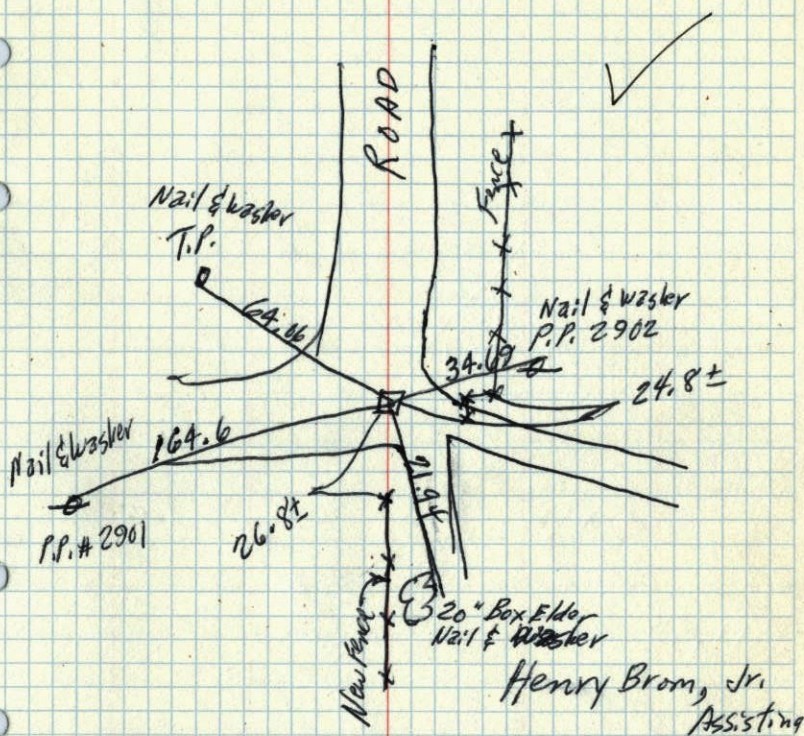 ROAD
Fence
Nail & Washer
T.P.
64.06
Nail & Washer
P.P. 2902
34.69
24.8±
Nail & Washer
164.6
P.P. # 2901
26.8±
71.94
20" Box Elder
Nail & Washer
New Fence
Henry Brom, Jr.
Assisting